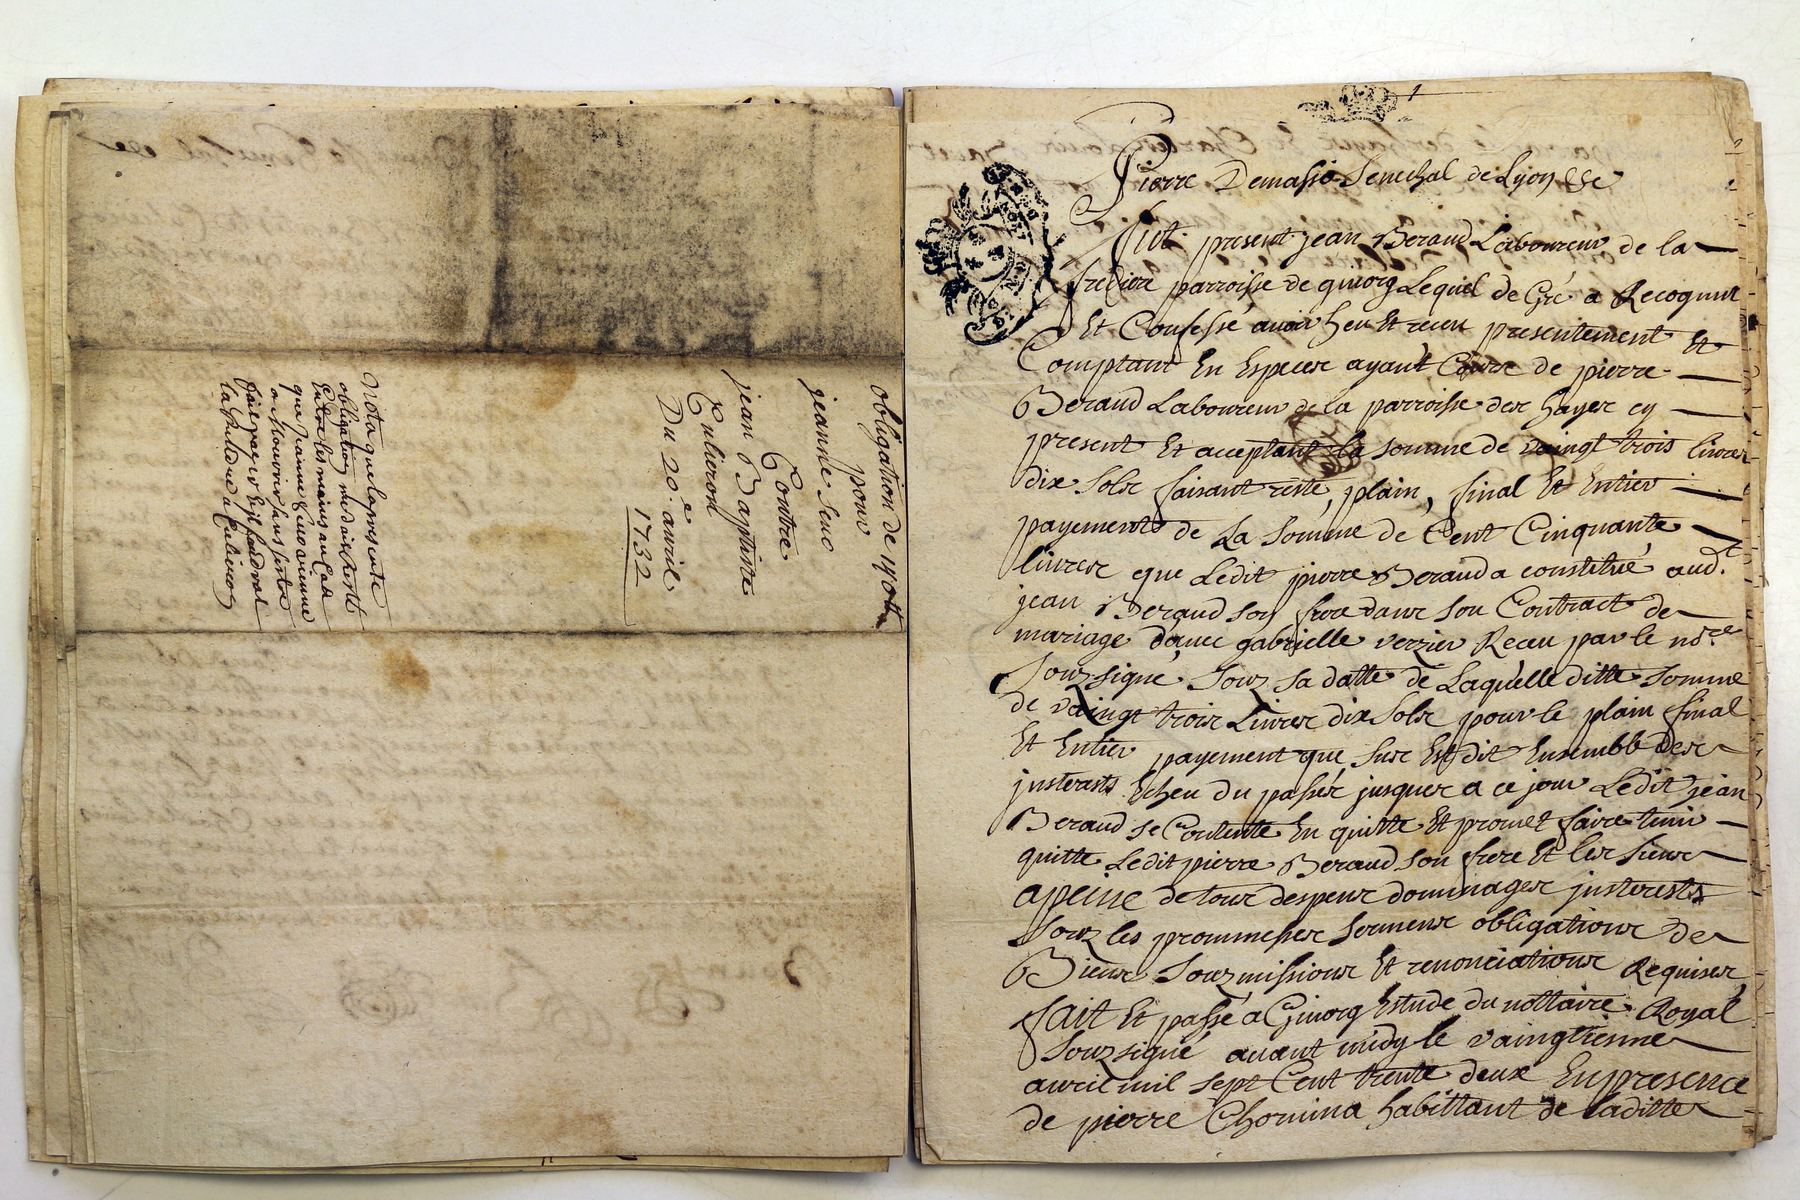 obligation de 190ll
pour
jeanne seuc
Contre
jean Baptiste
Culieron
Du 20e avril
1732
Nota que la presente
obligation
Entre les mains au Cas
que Jeanne Seuc vienne
a Mourir sans
fait payer
1
Pierre Demasso Senechal de Lyon &c
fut present jean Beraud Laboureur de la
parroisse de givorg Lequel de Gré a Recognut
Et Confessé avoir heu Et receu presentement Et
Comptant En Especes ayant Cours de pierre
Beraud Laboureur de la parroisse des hayes cy
present Et acceptant la somme de vaingt trois livres
dix sols faisant reste, plain, final Et Entier
payement de La somme de Cent Cinquante
livres que Ledit pierre Beraud a constitué aud.t
jean Beraud son frere dans son Contract de
mariage d'avec gabrielle verzier Receu par le no.re
souzsigné souz sa datte de Laquelle ditte somme
de vaingt trois Livres dix sols pour le plain final
Et Entier payement que sus Est dit Ensemble des
justerasts Echeu du passés jusques a ce jour Ledit jean
Beraud se Contente En quitte Et promet faire tenir
quitte Ledit pierre Beraud son frere Et les siens
apeine de tous despens dommages justerests
souz les prommesses sermens obligations de
Biens souzmissions Et renonciations Requises
fait Et passé a Givorg Estude du nottaire Royal
souzsigné avant midy le vaingtiesme
avril mil sept Cent trente deux En presence
de pierre Chomina habittant de laditte